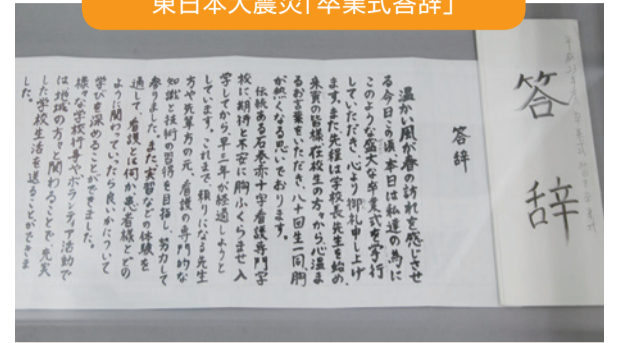 東日本大震災「卒業式答辞」
答辞
答辞
温かい風が春の訪れを感じさせ
る今日この頃、本日は私達の為に
このような盛大な卒業式を挙行
していただき、心より御礼申し上げ
ます。また先程は学校長先生を始め、
来賓の皆様、在校生の方々から心温ま
るお言葉をいただき、八十回生一同胸
が熱くなる思いでおります。
伝統ある石巻赤十字看護専門学
校に期待と不安に胸ふくらませ入
学してから、早三年が経過しようと
しています。これまで頼りになる先生
方や先輩方の元、看護の専門的な
知識と技術の習得を目指し、努力して
参りました。また、実習などの体験を
通して、看護とは何か、患者様とどの
ように関わっていったら良いかについて
学びを深めることができました。
様々な学校行事やボランティア活動で
は地域の方々と関わることで、充実
した学校生活を送ることができま
した。